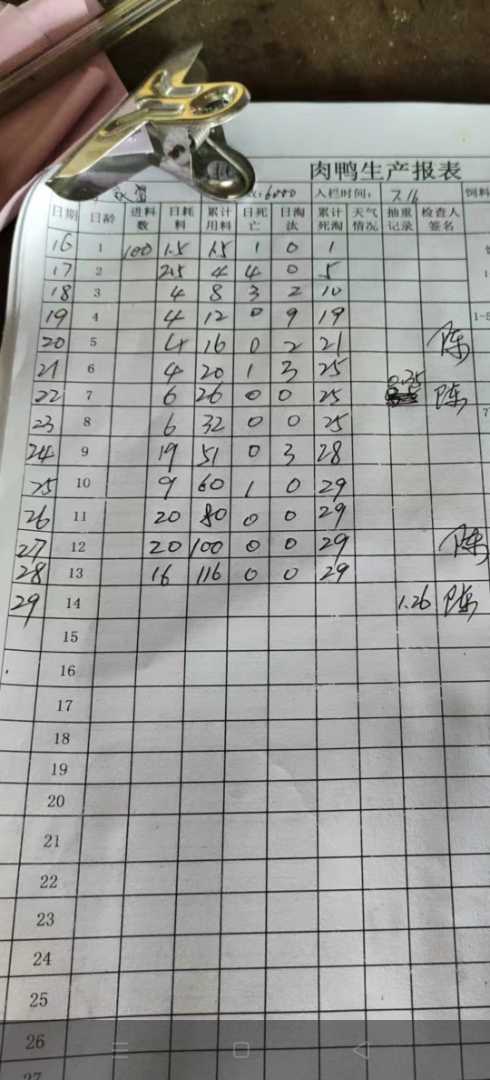 肉鸭生产报表
6000 入栏时间: 7.16 饲料
日期 日龄 进料数 日耗料 累计用料 日死亡 日淘汰 累计死淘 天气情况 抽重记录 检查人签名
16 1 100 1.5 1.5 1 0 1
17 2 2.5 4 4 0 5
18 3 4 8 3 2 10
19 4 4 12 0 9 19
20 5 4 16 0 2 21 陈
21 6 4 20 1 3 25
22 7 6 26 0 0 25 0.35 陈
23 8 6 32 0 0 25
24 9 19 51 0 3 28
25 10 9 60 1 0 29
26 11 20 80 0 0 29
27 12 20 100 0 0 29 陈
28 13 16 116 0 0 29
29 14 1.26 陈
15
16
17
18
19
20
21
22
23
24
25
26
27